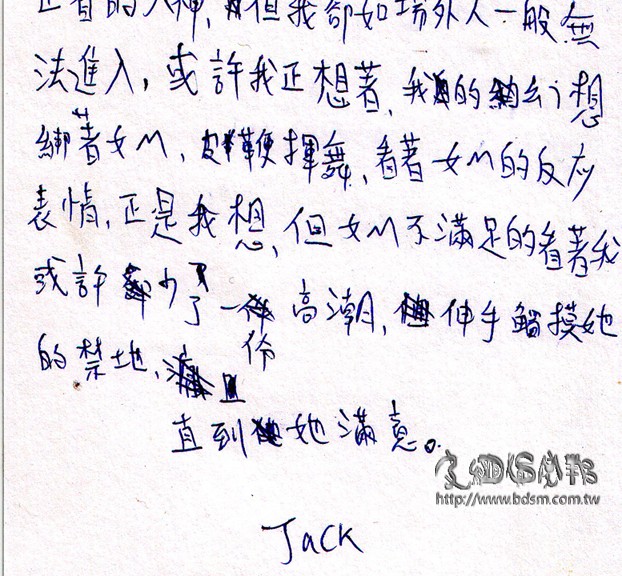 但我卻如場外人一般無
法進入,或許我正想著,我的幻想
綁著女M,皮鞭揮舞,看著女M的反应
表情,正是我想,但女M不滿足的看著我
或許少了一份高潮,伸手觸摸她
的禁地,
直到她滿意。
http://www.bdsm.com.tw
Jack